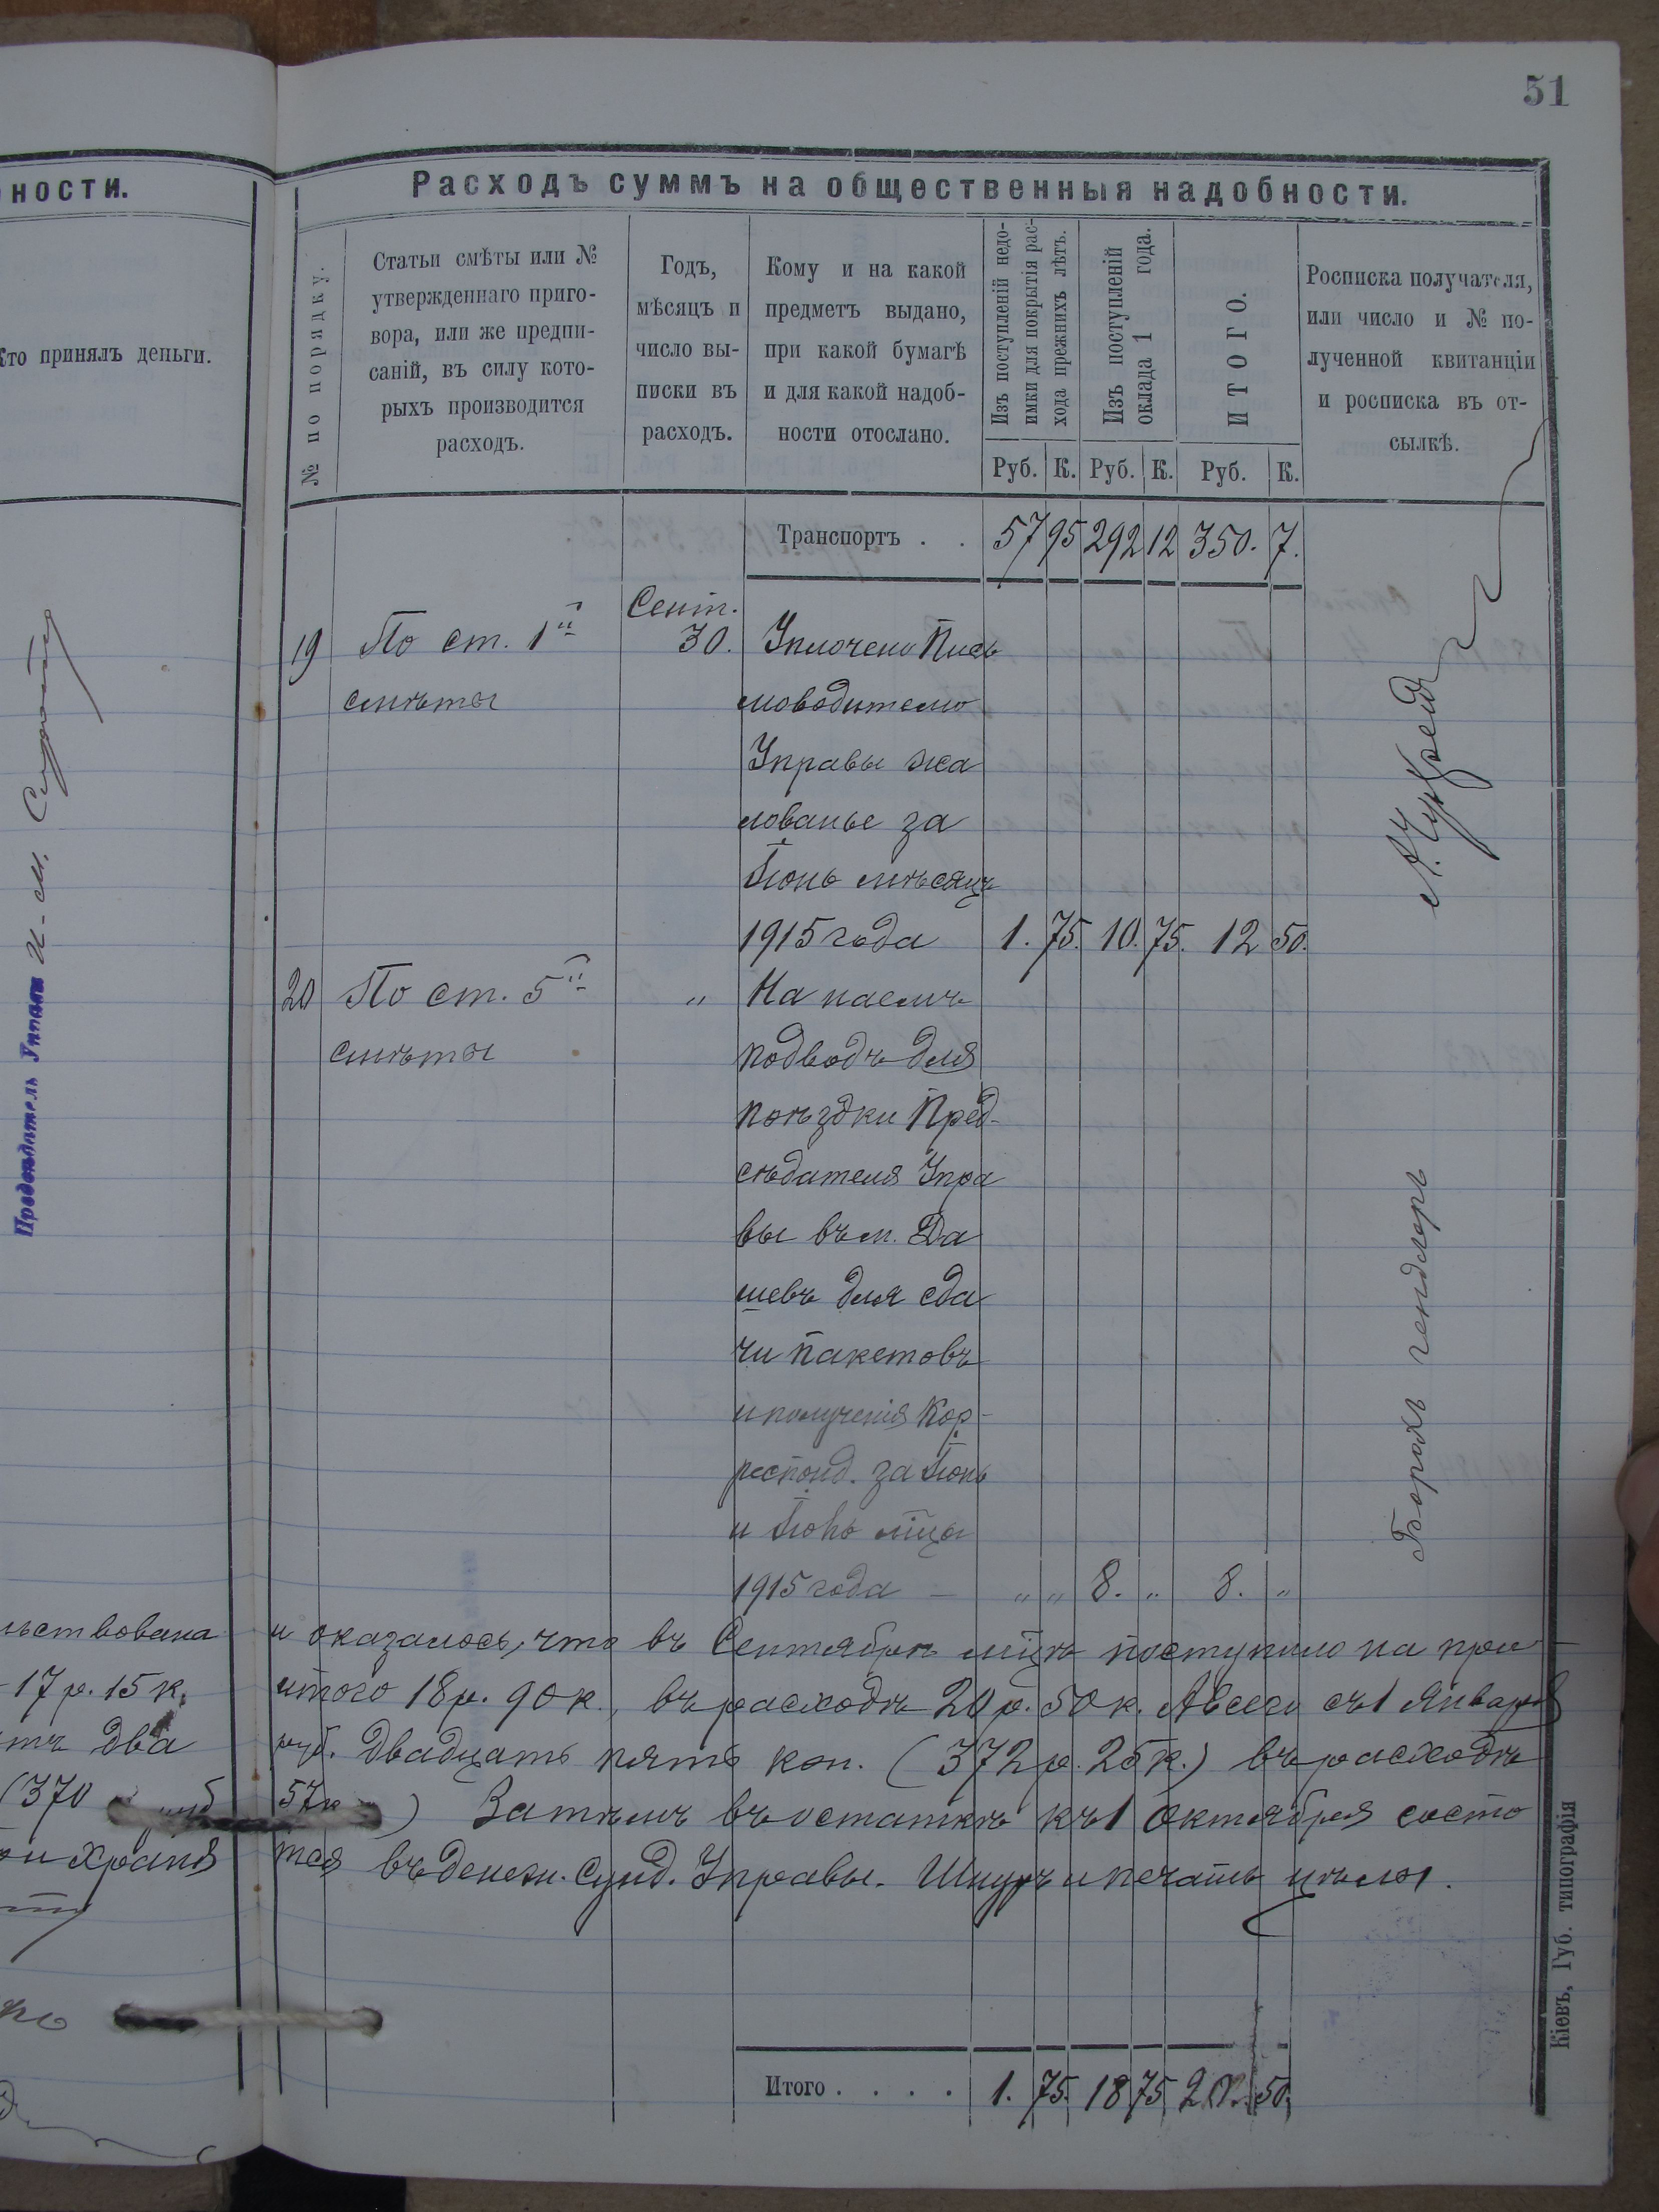 51
ности.
Расходъ суммъ на общественныя надобности.
Кто принялъ деньги.
№ по порядку.
Статьи смѣты или №
утвержденнаго приго-
вора, или же предпи-
саній, въ силу кото-
рыхъ производится
расходъ.
Годъ,
мѣсяцъ и
число вы-
писки въ
расходъ.
Кому и на какой
предметъ выдано,
при какой бумагѣ
и для какой надоб-
ности отослано.
Изъ поступленій недо-
имки для покрытія рас-
хода прежнихъ лѣтъ.
Изъ поступленій
оклада 1 года.
ИТОГО.
Росписка получателя,
или число и № по-
лученной квитанціи
и росписка въ от-
сылкѣ.
Руб. К. Руб. К. Руб. К.
Транспортъ . . 57 95 292 12 350. 7.
19 По ст. 1й Сент. 30. Уплочено Пись
смѣты моводителю
Управы жа
лованье за
Іюнь мѣсяцъ
1915 года 1. 75. 10. 75. 12 50.
20 По ст. 5й " На наемъ
смѣты подводъ для
поѣздки Пред-
сѣдателя Упра
вы въ м. Да
шевъ для сда
чи пакетовъ
и полученія Кор-
респонд. за Іюнь
и Іюль м̃цы
1915 года — " " 8. " 8. "
Предсѣдатель Управы И. М.
льствована и оказалось, что въ Сентябрѣ мѣцѣ поступило на при
17 р. 15 к. итого 18 р. 90 к., въ расходѣ 20 р. 50 к. А всего съ 1 Января
два руб. двадцать пять коп. (372 р. 25 к.) въ расходѣ
(370 руб 57 к ) Затѣмъ въ остаткѣ къ 1 Октября состо
и храня тся въ денеж. Сунд. Управы. Шнуръ и печать цѣлы.
Итого . . . . 1. 75. 18 75 20. 50.
Кіевъ, Губ. типографія